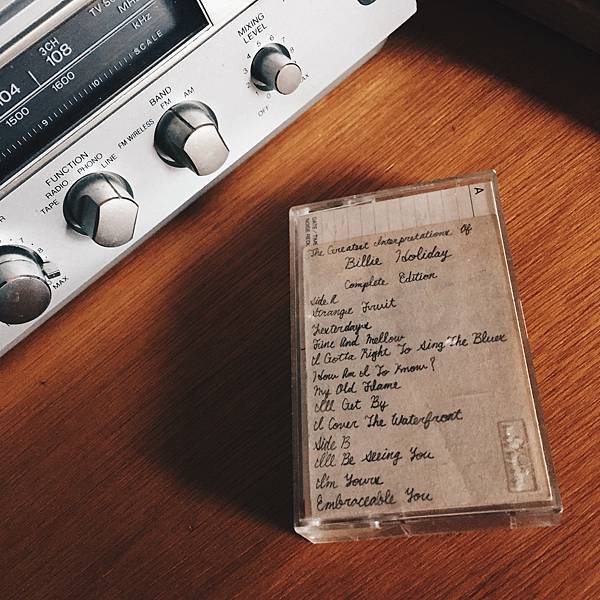 TV 5
MHz
kHz
3CH
104
108
1500
1600
9
10
SCALE
MIXING
LEVEL
OFF
MAX
BAND
FM
AM
FM WIRELESS
FUNCTION
PHONO
RADIO
LINE
TAPE
MAX
A
DATE / TIME
NOISE REDN.
The Greatest Interpretations Of
Billie Holiday
Complete Edition
Side A
Strange Fruit
Yesterdays
Fine And Mellow
I Gotta Right To Sing The Blues
How Am I To Know?
My Old Flame
I'll Get By
I Cover The Waterfront
Side B
I'll Be Seeing You
I'm Yours
Embraceable You